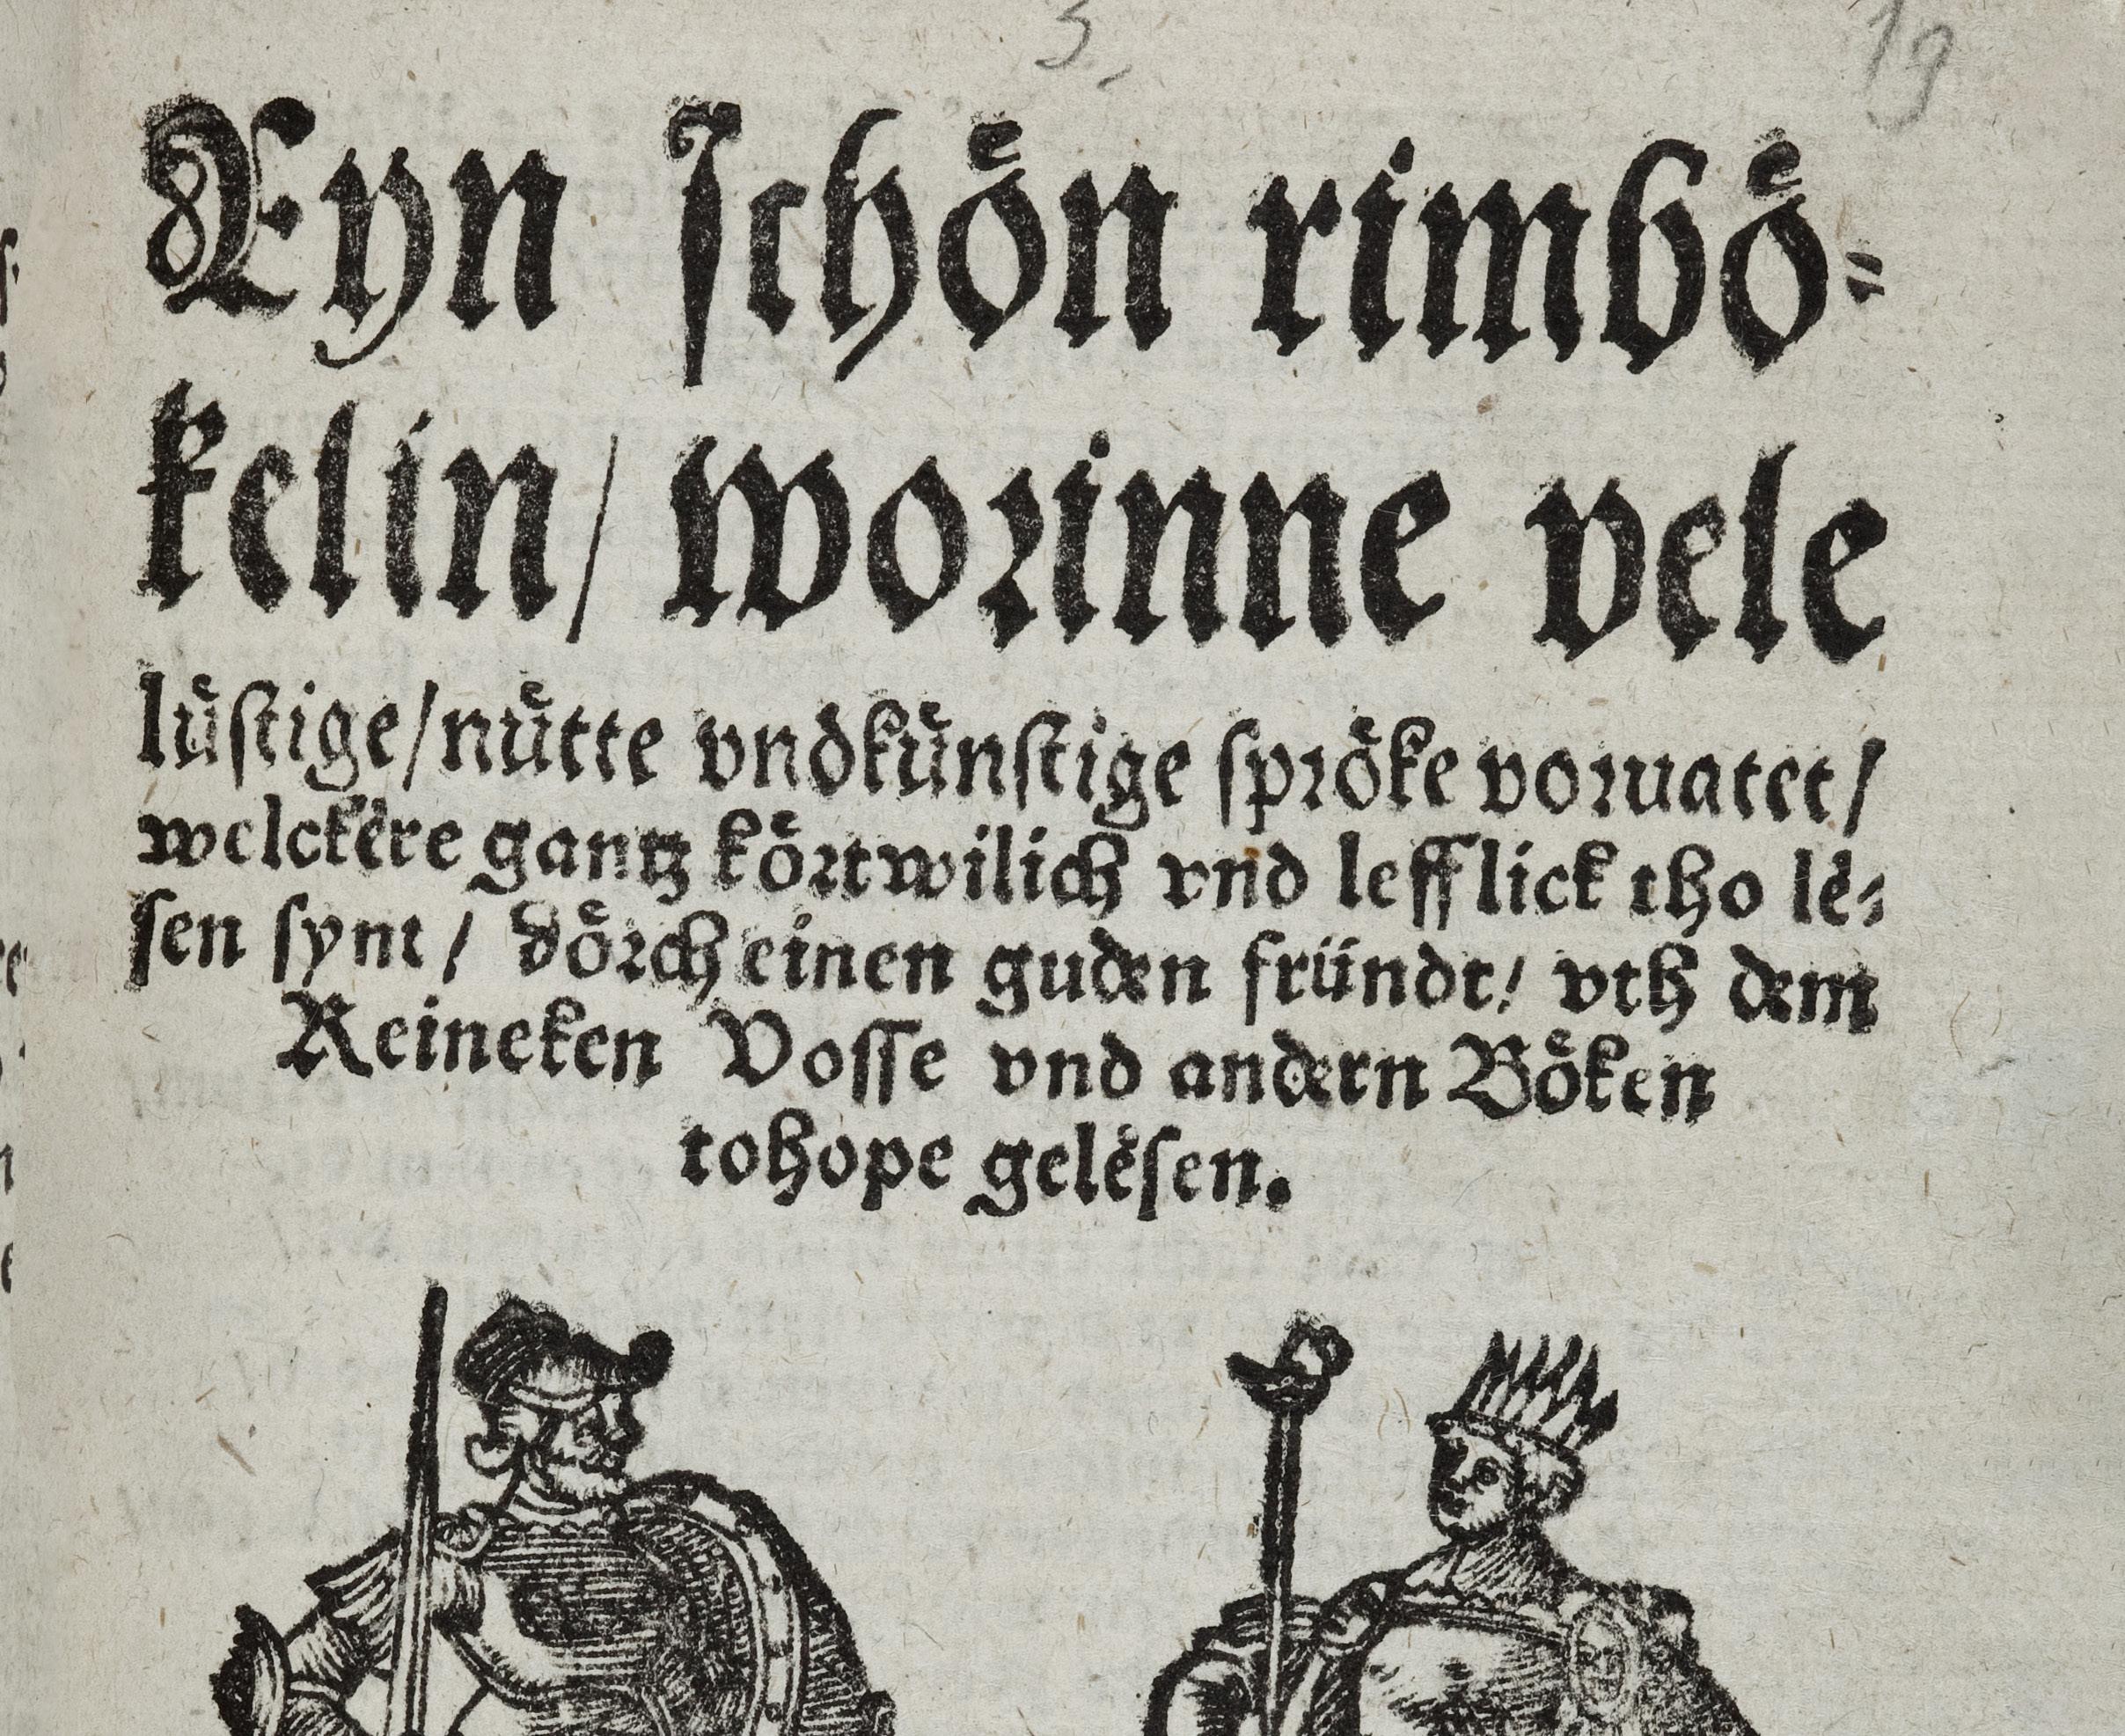 5.
19
Eyn ſchoͤn rimboͤ⸗
kelin/ worinne vele
luͤſtige/nuͤtte vndkuͤnſtige ſproͤke voruatet/
welckeͤre gantz koͤrtwilich vnd lefflick tho leͤ⸗
ſen ſynt/ doͤrch einen guden fruͤndt/ vth dem
Reineken Voſſe vnd andern Boͤken
tohope geleͤſen.